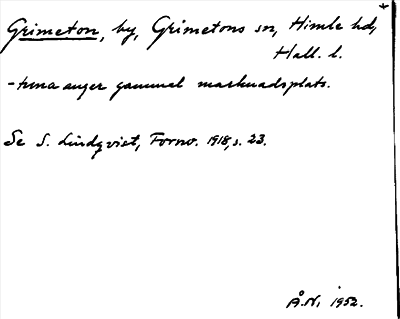 Grimeton, by, Grimetons sn, Himle hd,
Hall. l.
-tuna anger gammal marknadsplats.
Se S. Lindqvist, Fornv. 1918, s. 23.
Å.N. 1952.